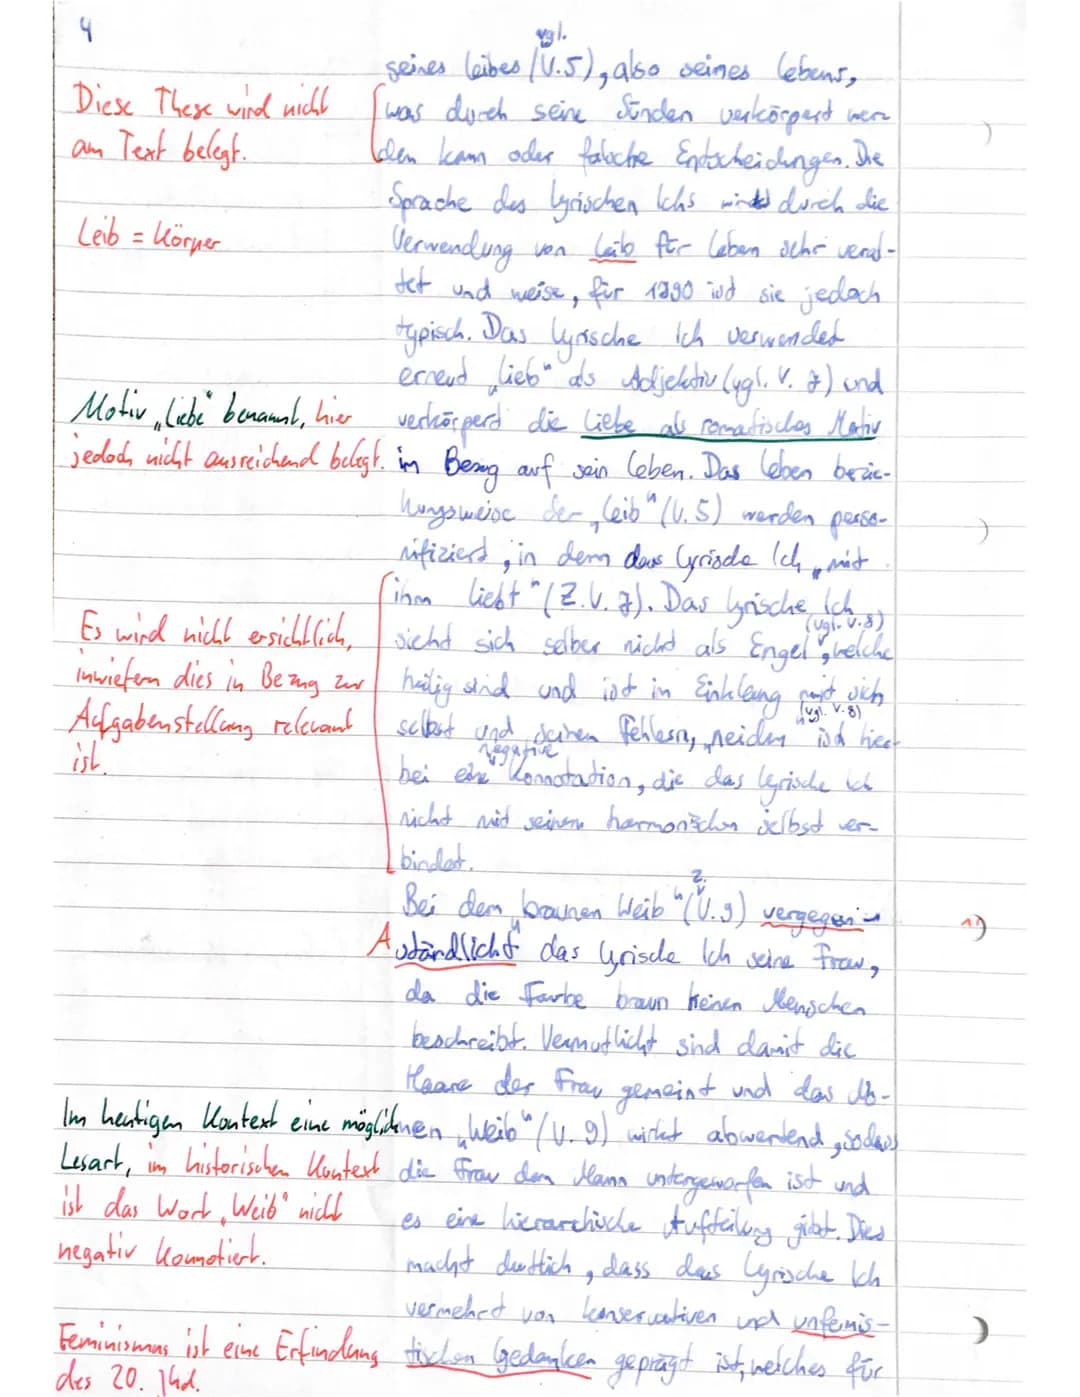 4
vgl.
seines Leibes (V.5), also seines Lebens,
Diese These wird nicht
was durch seine Sünden verkörpert wer-
am Text belegt.
den kann oder falsche Entscheidungen. Die
Sprache des lyrischen Ichs wird durch die
Leib = Körper
Verwendung von Leib für Leben sehr veral-
tet und weise, für 1790 ist sie jedoch
typisch. Das lyrische Ich verwendet
erneut „lieb" als Adjektiv (vgl. V. 7) und
Motiv „Liebe" benannt, hier
verkörpert die Liebe als romatisches Motiv
jedoch nicht ausreichend belegt.
im Bezug auf sein Leben. Das Leben bezie-
hungsweise der „Leib" (V. 5) werden perso-
nifiziert, in dem das lyrische Ich „mit
ihm liebt" (Z.V. 7). Das lyrische Ich
(vgl. V.8)
Es wird nicht ersichtlich,
sieht sich selber nicht als Engel, welche
inwiefern dies in Bezug zur
heilig sind und ist im Einklang mit sich
(vgl. V.8)
Aufgabenstellung relevant
selbst und seinen Fehlern, „neiden" ist hier-
ist.
negative
bei eine Konnotation, die das lyrische Ich
nicht mit seinem harmonischen selbst ver-
bindet.
Z.
Bei dem „braunen Weib" (V.9) vergegen-
A
ständlicht das lyrische Ich seine Frau,
da die Farbe braun keinen Menschen
beschreibt. Vermutlicht sind damit die
Haare der Frau gemeint und das No-
Im heutigen Kontext eine mögliche
men „Weib" (V. 9) wirkt abwertend, sodass
Lesart, im historischen Kontext
die Frau dem Mann untergeworfen ist und
ist das Wort „Weib" nicht
es eine hierarchische Aufteilung gibt. Dies
negativ konnotiert.
macht deutlich, dass das lyrische Ich
vermehrt von konservativen und unfemis-
Feminismus ist eine Erfindung
tischen Gedanken geprägt ist, welches für
des 20. Jhd.